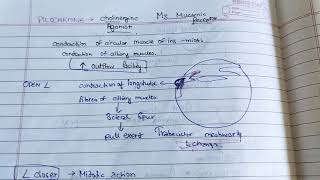 PILOCARPINE → cholinergic agonist M3 Muscarinic Receptor
contraction of circular muscle of iris - miosis
contraction of ciliary muscles.
↑ outflow facility
OPEN L contraction of longitudinal
fibres of ciliary muscles.
↓
Scleral Spur
↓
pull exert Trabecular meshwork
& change
L closed → Miotic action